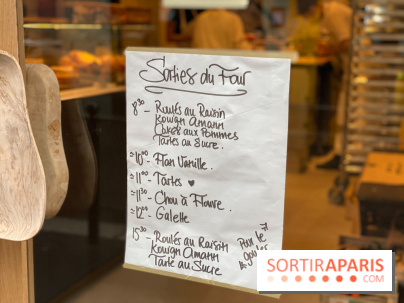 Sorties du Four
8³⁰ - Roulés au Raisin
Kouign Amann
Cakes aux Pommes
Tartes au Sucre.
≈10⁰⁰ - Flan Vanille.
≈11⁰⁰ - Tartes ♥
≈11³⁰ - Chou à Flaure.
≈12⁰⁰ - Galette
15³⁰ - Roulés au Raisin
Kouign Amann
Tarte au Sucre
Pour le
goûter
SORTIRAPARIS
.COM